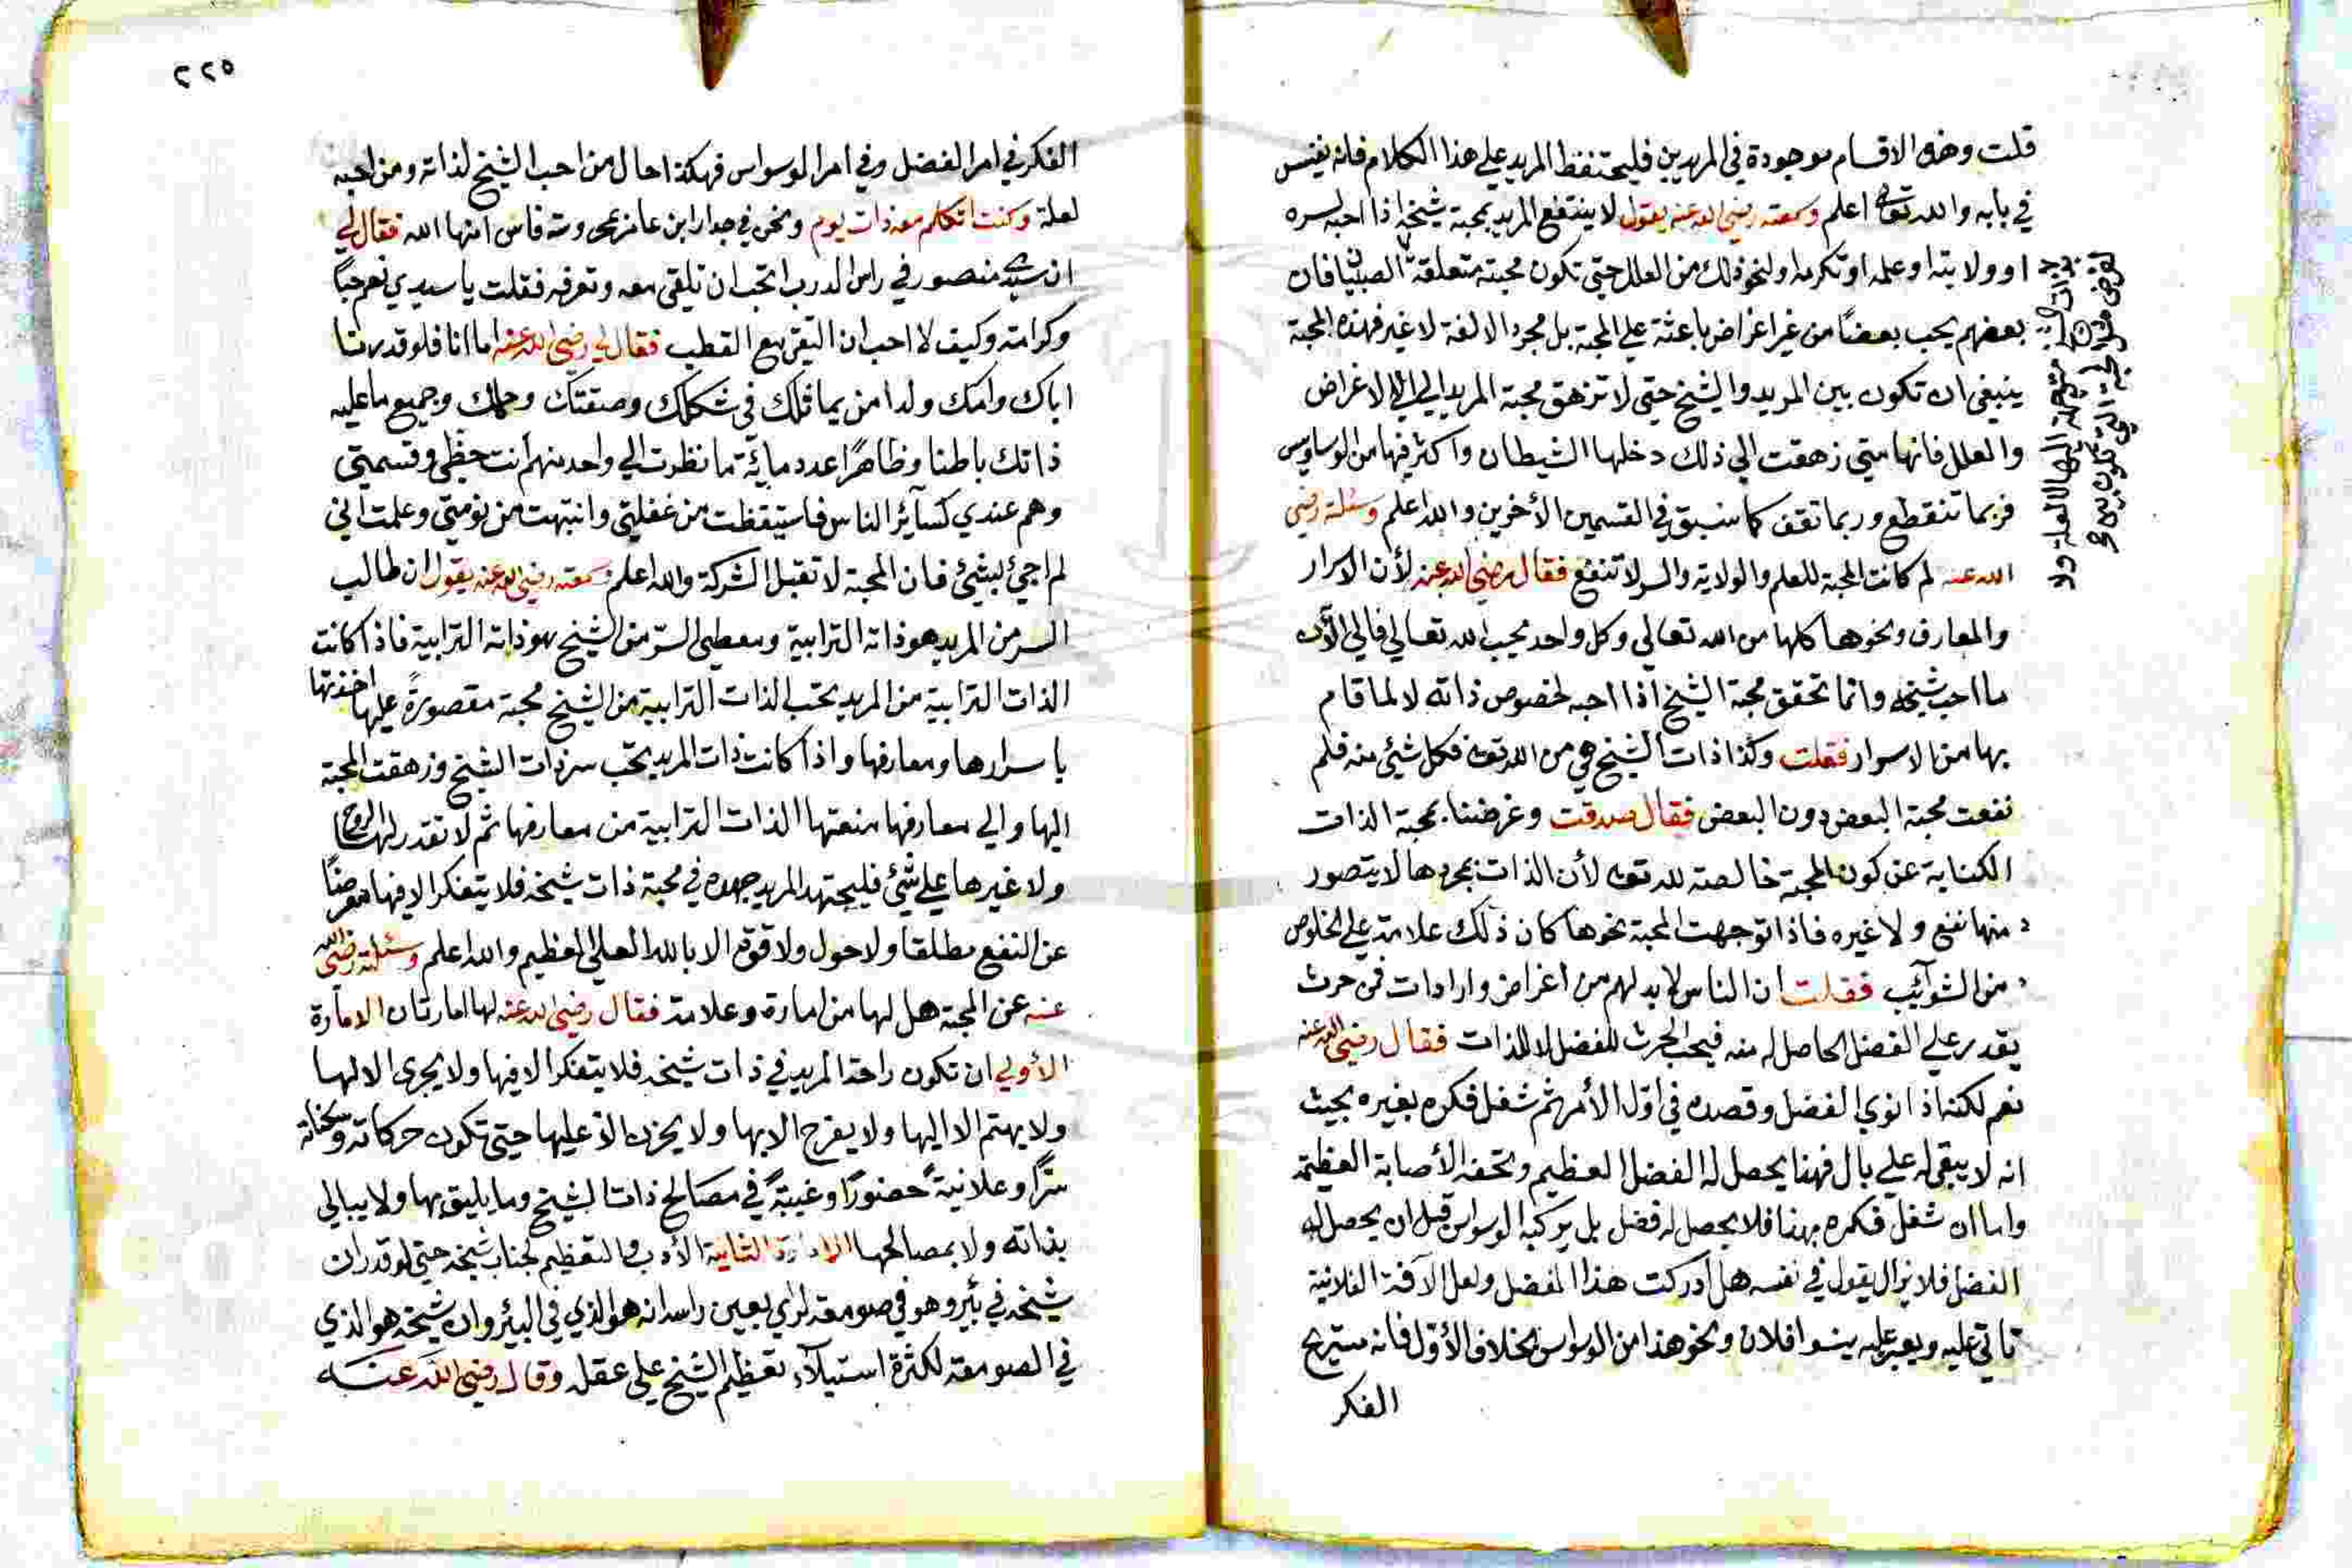 قلت وهذه الاقسام موجودة في المريدين فليحتفظ المريد علي هذا الكلام فانه نفيس
في بابه والله تعالي اعلم وسمعته رضي الله عنه يقول لا ينتفع المريد بمحبة شيخه اذا احبه لسره
او ولايته او علمه او تكرمه او لنحو ذلك من العلل حتي تكون محبته متعلقة الصبيان فان
بعضهم يحب بعضا من غير اغراض باعثة علي المحبة بل مجرد الالفة لا غير فهذه المحبة
ينبغي ان تكون بين المريد والشيخ حتي لا تزهق محبة المريد الي الاغراض
والعلل فانها متي زهقت الي ذلك دخلها الشيطان واكثر فيها من الوساوس
فربما تنقطع وربما تقف كما سبق في القسمين الأخرين والله اعلم وسئلته رضي
الله عنه لم كانت المحبة للعلم والولاية والسر لا تنفع فقال رضي الله عنه لأن الاسرار
والمعارف ونحوها كلها من الله تعالي وكل واحد يحب الله تعالي فالي الآن
ما احب شيخه وانما تحقق محبة الشيخ اذا احبه لخصوص ذاته لا لما قام
بها من الاسرار فقلت وكذا ذات الشيخ هي من الله تعه فكل شيئ منه فلم
نفعت محبة البعض دون البعض فقال صدقت وغرضنا بمحبة الذات
الكناية عن كون المحبة خالصة لله تعه لأن الذات بمجردها لا يتصور
منها نفع ولا غيره فاذا توجهت المحبة نحوها كان ذلك علامة علي الخلوص
من الشوآئب فقلت ان الناس لا بد لهم من اغراض وارادات فمن حرث
يقدر علي الفضل الحاصل له منه فيحب الحرث للفضل لا للذات فقال رضي الله عنه
نعم لكنه اذا نوي الفضل وقصده في اول الأمر ثم شغل فكره بغيره بحيث
انه لا يبقي له علي بال فهذا يحصل له الفضل العظيم وتحفه الأصابة العظيمة
واما ان شغل فكره بهذا فلا يحصل له فضل بل يركبه الوسواس قبل ان يحصل له
الفضل فلا يزال يقول في نفسه هل ادركت هذا الفضل ولعل الآفة الفلانية
تاتي عليه ويغير عليه بنوا فلان ونحو هذا من الوسواس بخلاف الأول فانه مستريح
الفكر
٢٢٥
الفكر في امر الفضل وفي امر الوسواس فهكذا حال من احب الشيخ لذاته ومن احبه
لعلة وكنت اتكلم معه ذات يوم ونحن في جدار ابن عامر بمحروسة فاس امنها الله فقال لي
ان سيدي منصور في راس الدرب اتحب ان تلقي معه وتعرفه فقلت يا سيدي نعم حبا
وكرامة وكيف لا احب ان التقي مع القطب فقال لي رضي الله عنه اما انا فلو قدرنا
اباك وامك ولدا من يماثلك في شكلك وصفتك وحلك وجميع ما عليه
ذاتك باطنا وظاهرًا عدد مائة ما نظرت الي واحد منهم انت حظي وقسمتي
وهم عندي كسآئر الناس فاستيقظت من غفلتي وانتبهت من نومتي وعلمت اني
لم اجئ بشيئ فان المحبة لا تقبل الشركة والله اعلم وسمعته رضي الله عنه يقول ان طالب
السر من المريد هو ذاته الترابية ومعطي السر من الشيخ هو ذاته الترابية فاذا كانت
الذات الترابية من المريد تحب الذات الترابية من الشيخ محبة مقصورة عليها اخذتها
باسرارها ومعارفها واذا كانت ذات المريد تحب سر ذات الشيخ وزهقت المحبة
اليها والي معارفها منعتها الذات الترابية من معارفها ثم لا تقدر لها الروح
ولا غيرها علي شيئ فليجتهد المريد جهده في محبة ذات شيخه فلا يتفكر الا فيها معرضا
عن النفع مطلقا ولا حول ولا قوة الا بالله العلي العظيم والله اعلم وسئلته رضي الله
عنه عن المحبة هل لها من امارة وعلامة فقال رضي الله عنه لها امارتان الامارة
الأولي ان تكون راحة المريد في ذات شيخه فلا يتفكر الا فيها ولا يجري الا لها
ولا يهتم الا اليها ولا يفرح الا بها ولا يحزن الا عليها حتي تكون حركاته وسكناته
سرًّا وعلانيةً حضورًا وغيبةً في مصالح ذات الشيخ وما يليق بها ولا يبالي
بذاته ولا بمصالحها الامارة الثانية الأدب والتعظيم لجناب شيخه حتي لو قدر ان
شيخه في بئر وهو في صومعة لراي بعين راسه انه هو الذي في البئر وان شيخه هو الذي
في الصومعة لكثرة استيلآء تعظيم الشيخ علي عقله وقال رضي الله عنه